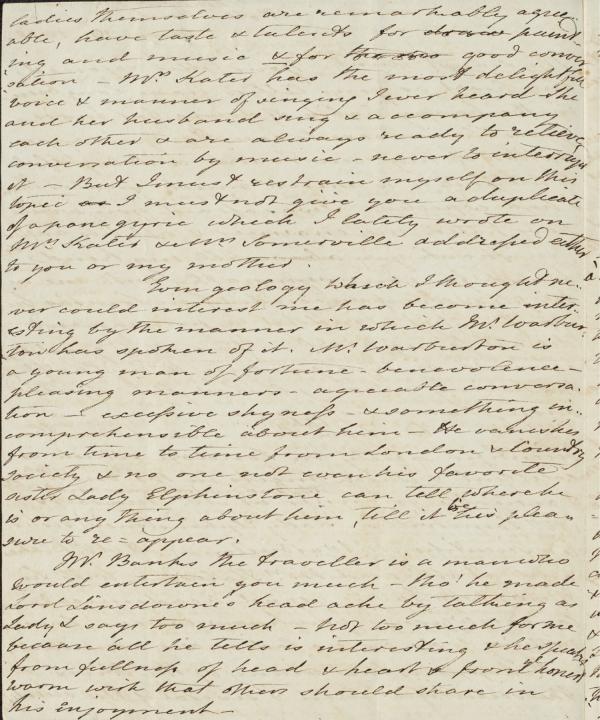 ladies themselves are remarkably agree
able, have taste & talents for paint
ing and music & for good conver
sation – Mrs Kater has the most delightful
voice & manner of singing I ever heard she
and her husband sing & accompany
each other & are always ready to relieve
conversation by music – never to interrupt
it – But I must restrain myself on this
topic as I must not give you a duplicate
of a panegyric which I lately wrote on
Mrs Kater & Mrs Somerville addressed either
to you or my mother.
Even geology which I thought ne-
ver could interest me has become inter-
esting by the manner in which Mr. Warbur
ton has spoken of it. Mr. Warburton is
a young man of fortune – benevolence –
pleasing manners – agreeable conversa-
tion – excessive shyness – & something in-
comprehensible about him – He vanishes
from time to time from London & Country
society & no one not even his favorite
sister Lady Elphinstone can tell where he
is or any thing about him, till it be his plea
sure to re=appear.
Mr. Banks the traveller is a man who
would entertain you much – tho' he made
Lord Lansdowne's head ache by talking as
Lady L says too much – Not too much for me
because all he tells is interesting & he speaks
from fullness of head & heart & from honest
warm wish that others should share in
his enjoyment –